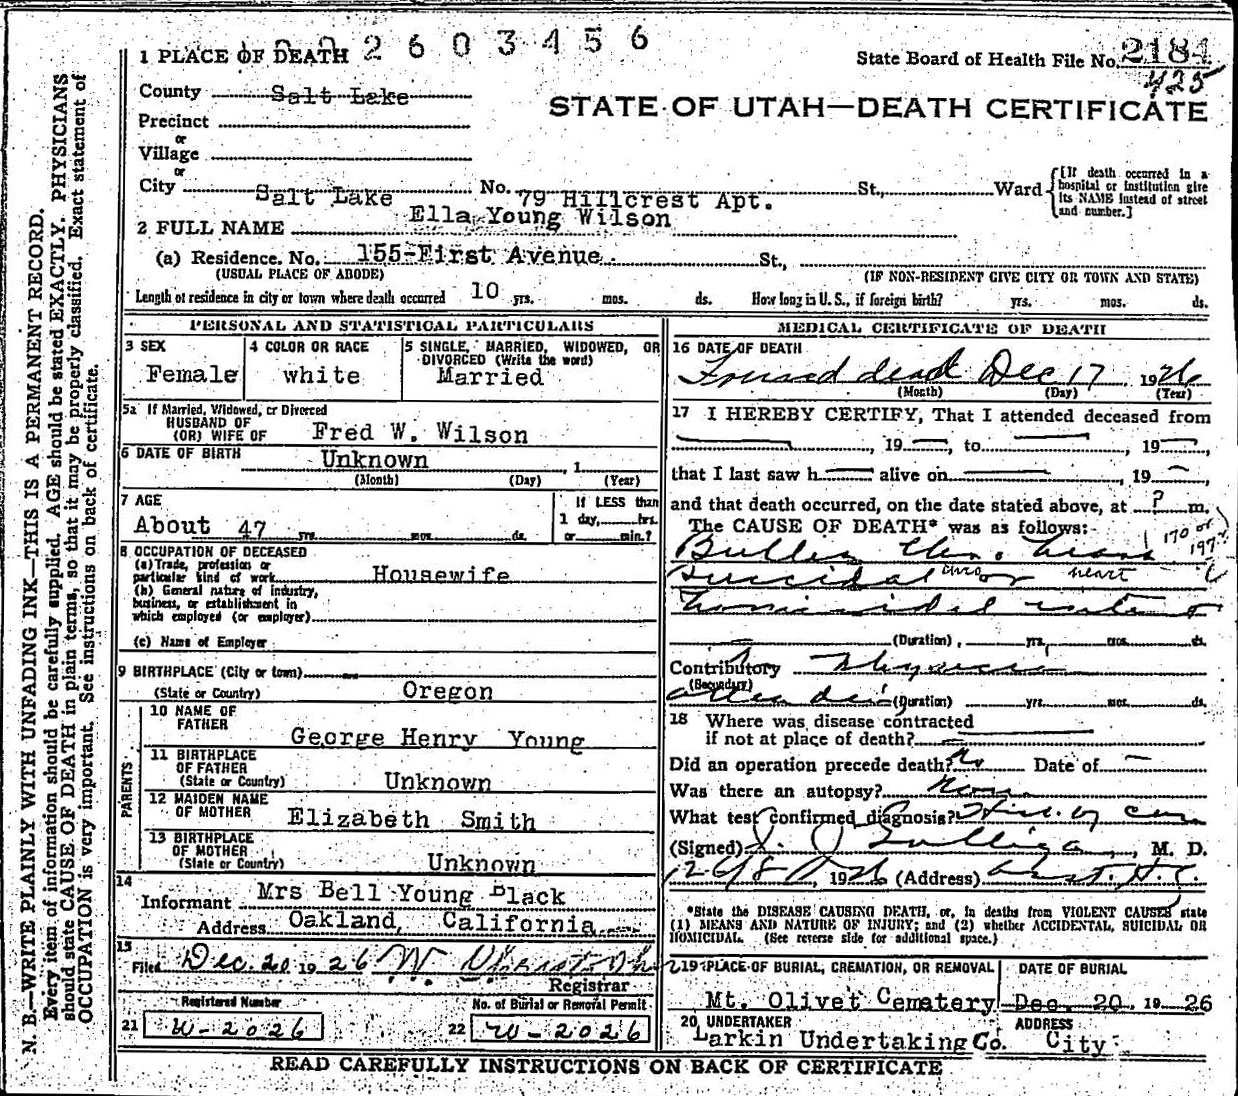 1 PLACE OF DEATH 2 6 0 3 4 5 6
State Board of Health File No. 2184
425
County Salt Lake
STATE OF UTAH—DEATH CERTIFICATE
Precinct
or
Village
or
City Salt Lake No. 79 Hillcrest Apt. St., Ward
[If death occurred in a hospital or institution give its NAME instead of street and number.]
2 FULL NAME Ella Young Wilson
(a) Residence. No. 155-First Avenue. St.,
(USUAL PLACE OF ABODE) (IF NON-RESIDENT GIVE CITY OR TOWN AND STATE)
Length of residence in city or town where death occurred 10 yrs. mos. ds. How long in U. S., if foreign birth? yrs. mos. ds.
PERSONAL AND STATISTICAL PARTICULARS
3 SEX Female
4 COLOR OR RACE white
5 SINGLE, MARRIED, WIDOWED, OR DIVORCED (Write the word) Married
5a If Married, Widowed, or Divorced
HUSBAND OF
(OR) WIFE OF Fred W. Wilson
6 DATE OF BIRTH Unknown , 1
(Month) (Day) (Year)
7 AGE
About 47 yrs. mos. ds.
If LESS than
1 day, hrs.
or min.?
8 OCCUPATION OF DECEASED
(a) Trade, profession or
particular kind of work Housewife
(b) General nature of industry,
business, or establishment in
which employed (or employer)
(c) Name of Employer
9 BIRTHPLACE (City or town)
(State or Country) Oregon
PARENTS
10 NAME OF
FATHER George Henry Young
11 BIRTHPLACE
OF FATHER
(State or Country) Unknown
12 MAIDEN NAME
OF MOTHER Elizabeth Smith
13 BIRTHPLACE
OF MOTHER
(State or Country) Unknown
14
Informant Mrs Bell Young Black
Address Oakland, California
15
Filed Dec. 20 1926 W
Registrar
Registered Number
21 W-2026
No. of Burial or Removal Permit
22 W-2026
MEDICAL CERTIFICATE OF DEATH
16 DATE OF DEATH
Found dead Dec 17 1926
(Month) (Day) (Year)
17 I HEREBY CERTIFY, That I attended deceased from
, 19 , to , 19 ,
that I last saw h alive on , 19 ,
and that death occurred, on the date stated above, at ? m.
The CAUSE OF DEATH* was as follows:
170 or
197?
Bullet thro heart
Suicidal or heart
homicidal intent
(Duration) yrs. mos. ds.
Contributory
(Secondary)
(Duration) yrs. mos. ds.
18 Where was disease contracted
if not at place of death?
Did an operation precede death? No Date of
Was there an autopsy? None
What test confirmed diagnosis?
(Signed) , M. D.
, 1926 (Address)
*State the DISEASE CAUSING DEATH, or, in deaths from VIOLENT CAUSES, state
(1) MEANS AND NATURE OF INJURY; and (2) whether ACCIDENTAL, SUICIDAL OR
HOMICIDAL. (See reverse side for additional space.)
19 PLACE OF BURIAL, CREMATION, OR REMOVAL
Mt. Olivet Cemetery
DATE OF BURIAL
Dec. 20, 19 26
20 UNDERTAKER
Larkin Undertaking Co.
ADDRESS
City
READ CAREFULLY INSTRUCTIONS ON BACK OF CERTIFICATE
N. B.—WRITE PLAINLY WITH UNFADING INK—THIS IS A PERMANENT RECORD.
Every item of information should be carefully supplied. AGE should be stated EXACTLY. PHYSICIANS
should state CAUSE OF DEATH in plain terms, so that it may be properly classified. Exact statement of
OCCUPATION is very important. See instructions on back of certificate.